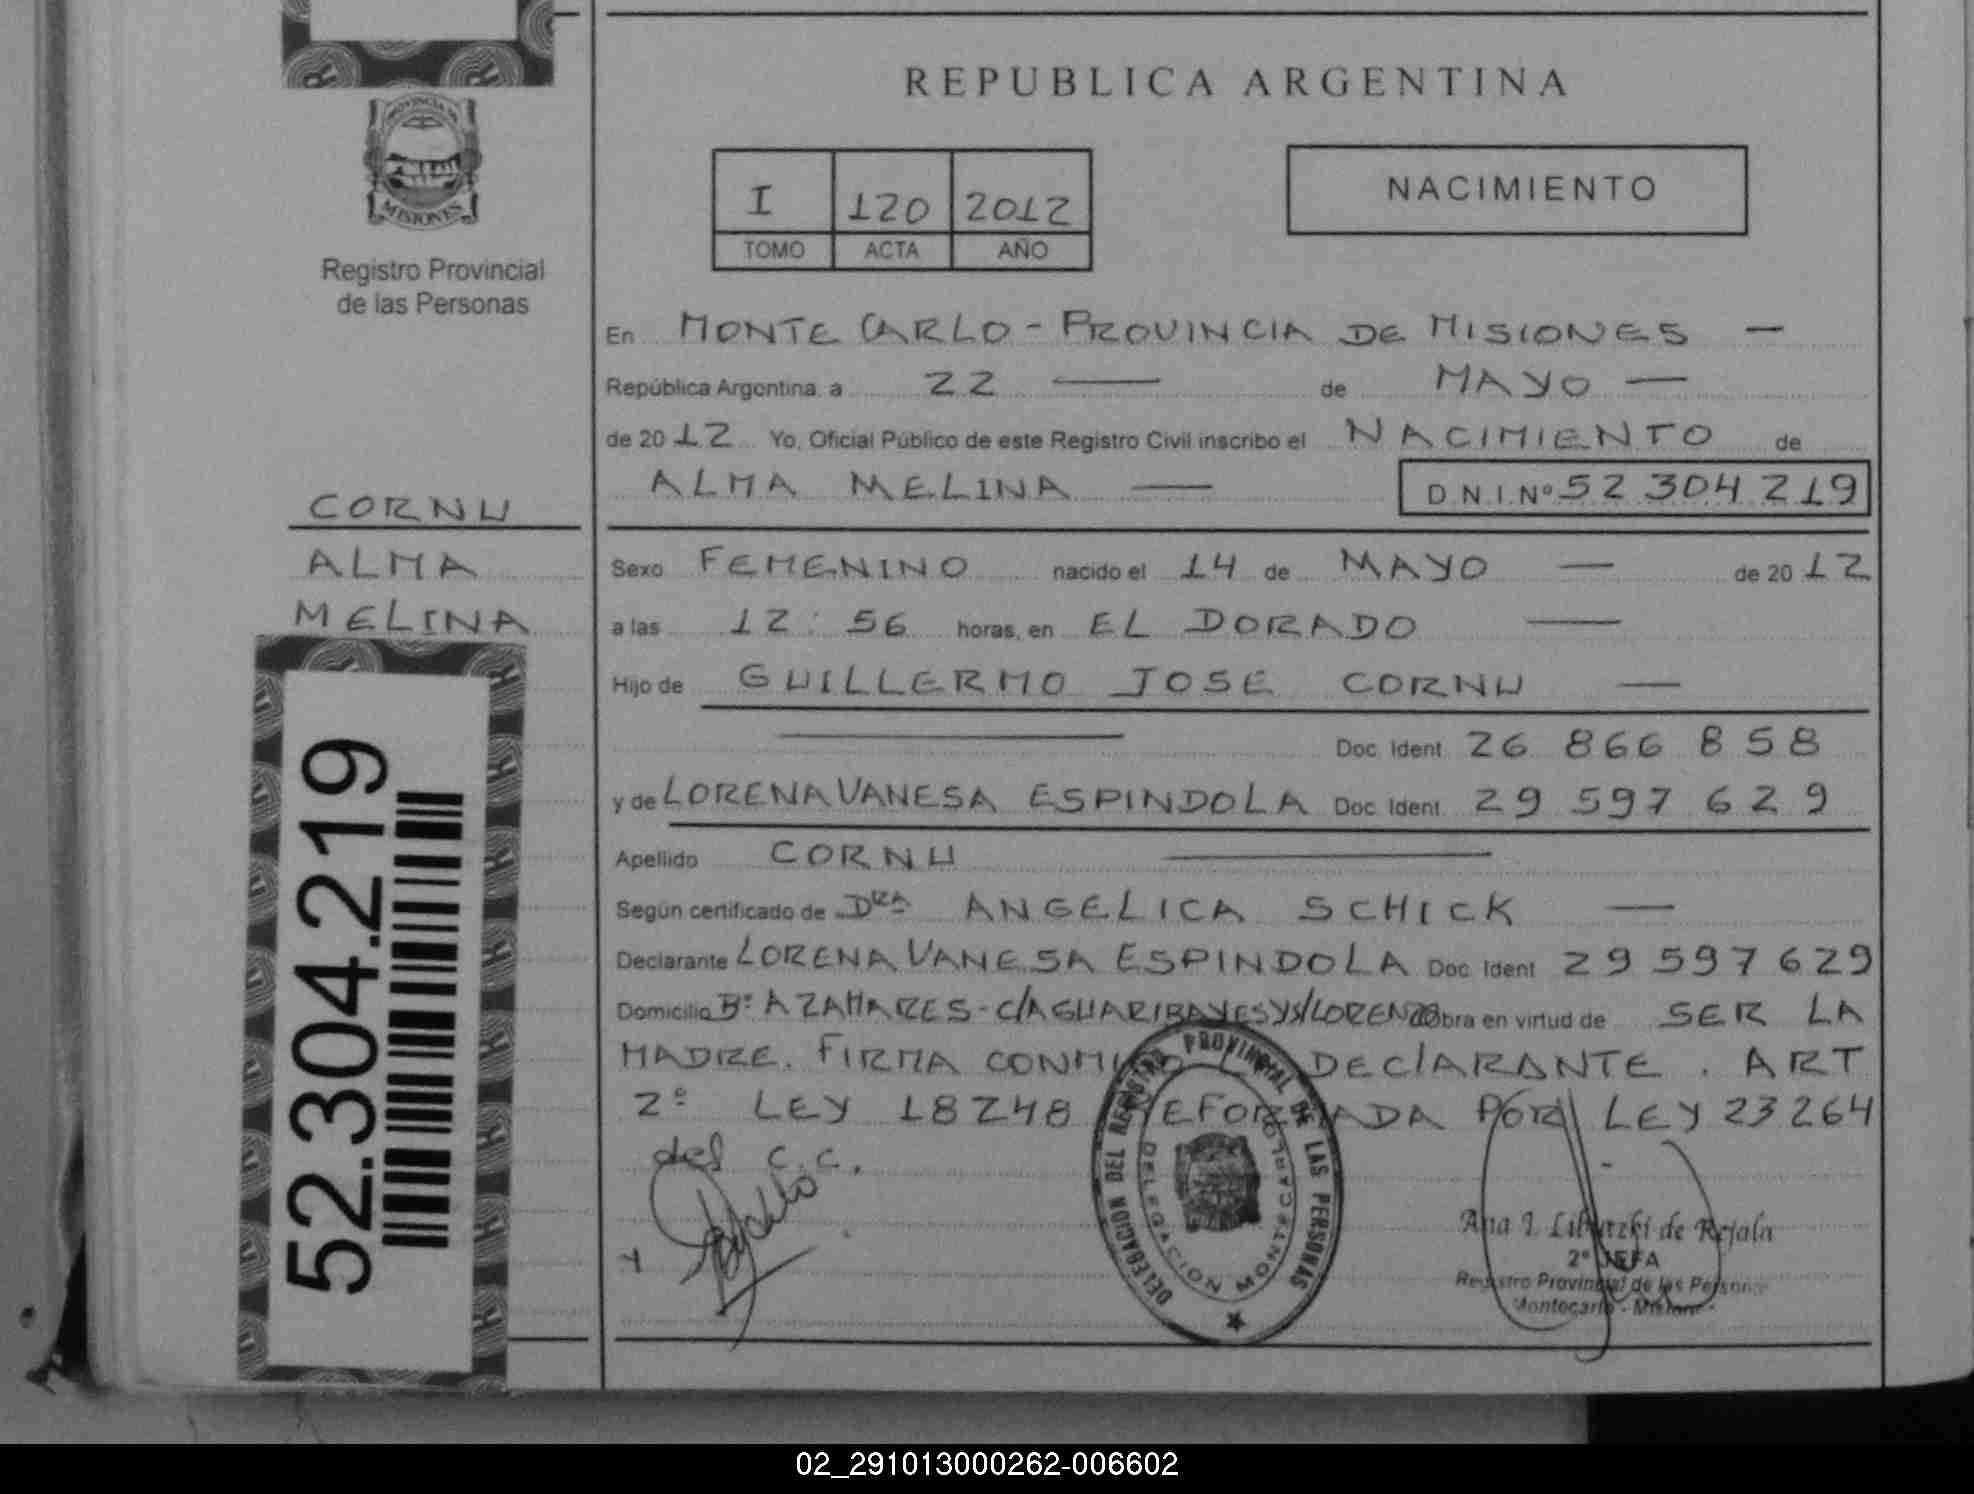 REPUBLICA ARGENTINA
PROVINCIA DE
MISIONES
Registro Provincial
de las Personas
I 120 2012
TOMO ACTA AÑO
NACIMIENTO
En MONTE CARLO - PROVINCIA DE MISIONES —
República Argentina. a 22 — de MAYO —
de 2012 Yo, Oficial Público de este Registro Civil inscribo el NACIMIENTO de
ALMA MELINA — D.N.I.Nº 52 304 219
CORNU
ALMA
MELINA
52.304.219
Sexo FEMENINO nacido el 14 de MAYO — de 2012
a las 12:56 horas, en EL DORADO —
Hijo de GUILLERMO JOSE CORNU —
— Doc. Ident. 26 866 858
y de LORENA VANESA ESPINDOLA Doc. Ident. 29 597 629
Apellido CORNU —
Según certificado de DRA ANGELICA SCHICK —
Declarante LORENA VANESA ESPINDOLA Doc. Ident 29 597 629
Domicilio Bº AZAHARES - C/AGUARIBAYES Y S/LORENZO Obra en virtud de SER LA
MADRE. FIRMA CONMIGO DECLARANTE. ART
2º LEY 18248 REFORMADA POR LEY 23264
del C.C.
DELEGACION DEL REGISTRO PROVINCIAL DE LAS PERSONAS
DELEGACION MONTECARLO
Ana I. de Rejala
2º JEFA
Registro Provincial de las Personas
Montecarlo - Misiones
02_291013000262-006602